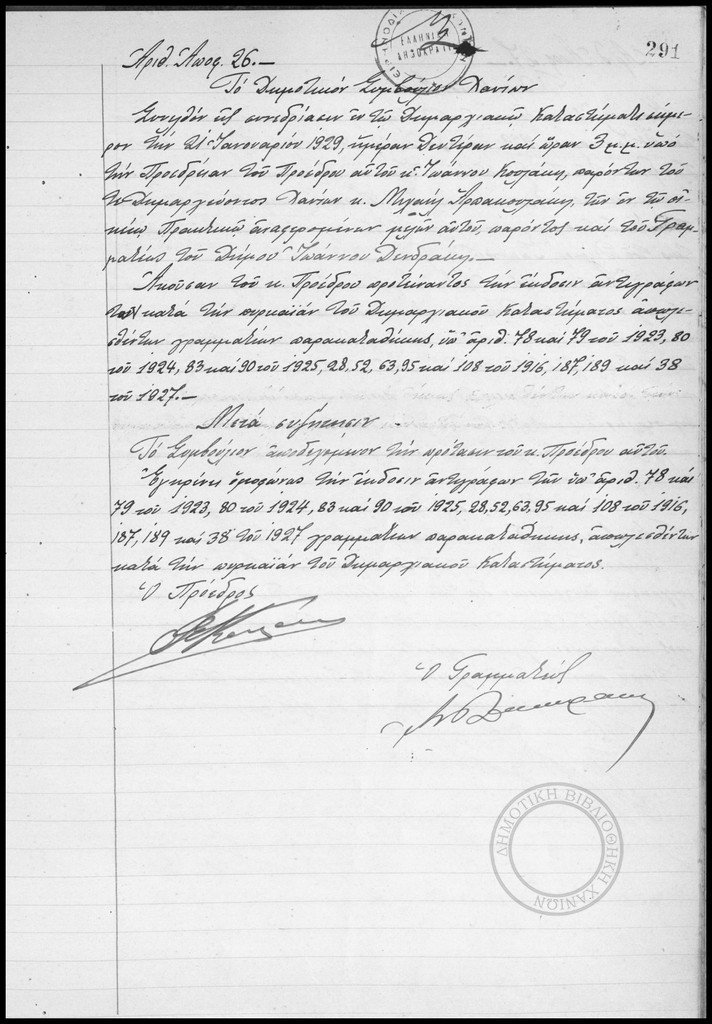 291
ΕΛΛΗΝΙΚΗ
ΔΗΜΟΚΡΑΤΙΑ
Ἀριθ. Ἀποφ. 26.—
Τὸ Δημοτικὸν Συμβούλιον Χανίων
Συνελθὸν εἰς συνεδρίασιν ἐν τῷ Δημαρχιακῷ Καταστήματι σήμε-
ρον τὴν 21 Ἰανουαρίου 1929, ἡμέραν Δευτέραν καὶ ὥραν 3 μ.μ. ὑπὸ
τὴν Προεδρείαν τοῦ Προέδρου αὐτοῦ κ. Ἰωάννου, παρόντων τοῦ
Δημαρχεύοντος Χανίων κ. Μιχαήλ, τῶν ἐν τῷ οἰ-
κείῳ Πρακτικῷ ἀναφερομένων μελῶν αὐτοῦ, παρόντος καὶ τοῦ Γραμ-
ματέως τοῦ Δήμου Ἰωάννου Δενδράκη.—
Ἀκοῦσαν τοῦ κ. Προέδρου προτείναντος τὴν ἔκδοσιν ἀντιγράφων
τῶν κατὰ τὴν πυρκαϊὰν τοῦ Δημαρχιακοῦ Καταστήματος ἀπολε-
σθέντων γραμματίων παρακαταθήκης, ὑπ' ἀριθ. 78 καὶ 79 τοῦ 1923, 80
τοῦ 1924, 83 καὶ 90 τοῦ 1925, 28, 52, 63, 95 καὶ 108 τοῦ 1916, 187, 189 καὶ 38
τοῦ 1927.—
Μετὰ συζήτησιν
Τὸ Συμβούλιον ἀποδεχόμενον τὴν πρότασιν τοῦ κ. Προέδρου αὐτοῦ.
Ἐγκρίνει ὁμοφώνως τὴν ἔκδοσιν ἀντιγράφων τῶν ὑπ' ἀριθ. 78 καὶ
79 τοῦ 1923, 80 τοῦ 1924, 83 καὶ 90 τοῦ 1925, 28, 52, 63, 95 καὶ 108 τοῦ 1916,
187, 189 καὶ 38 τοῦ 1927 γραμματίων παρακαταθήκης, ἀπολεσθέντων
κατὰ τὴν πυρκαϊὰν τοῦ Δημαρχιακοῦ Καταστήματος.
Ὁ Πρόεδρος
Ὁ Γραμματεύς
ΔΗΜΟΤΙΚΗ ΒΙΒΛΙΟΘΗΚΗ ΧΑΝΙΩΝ